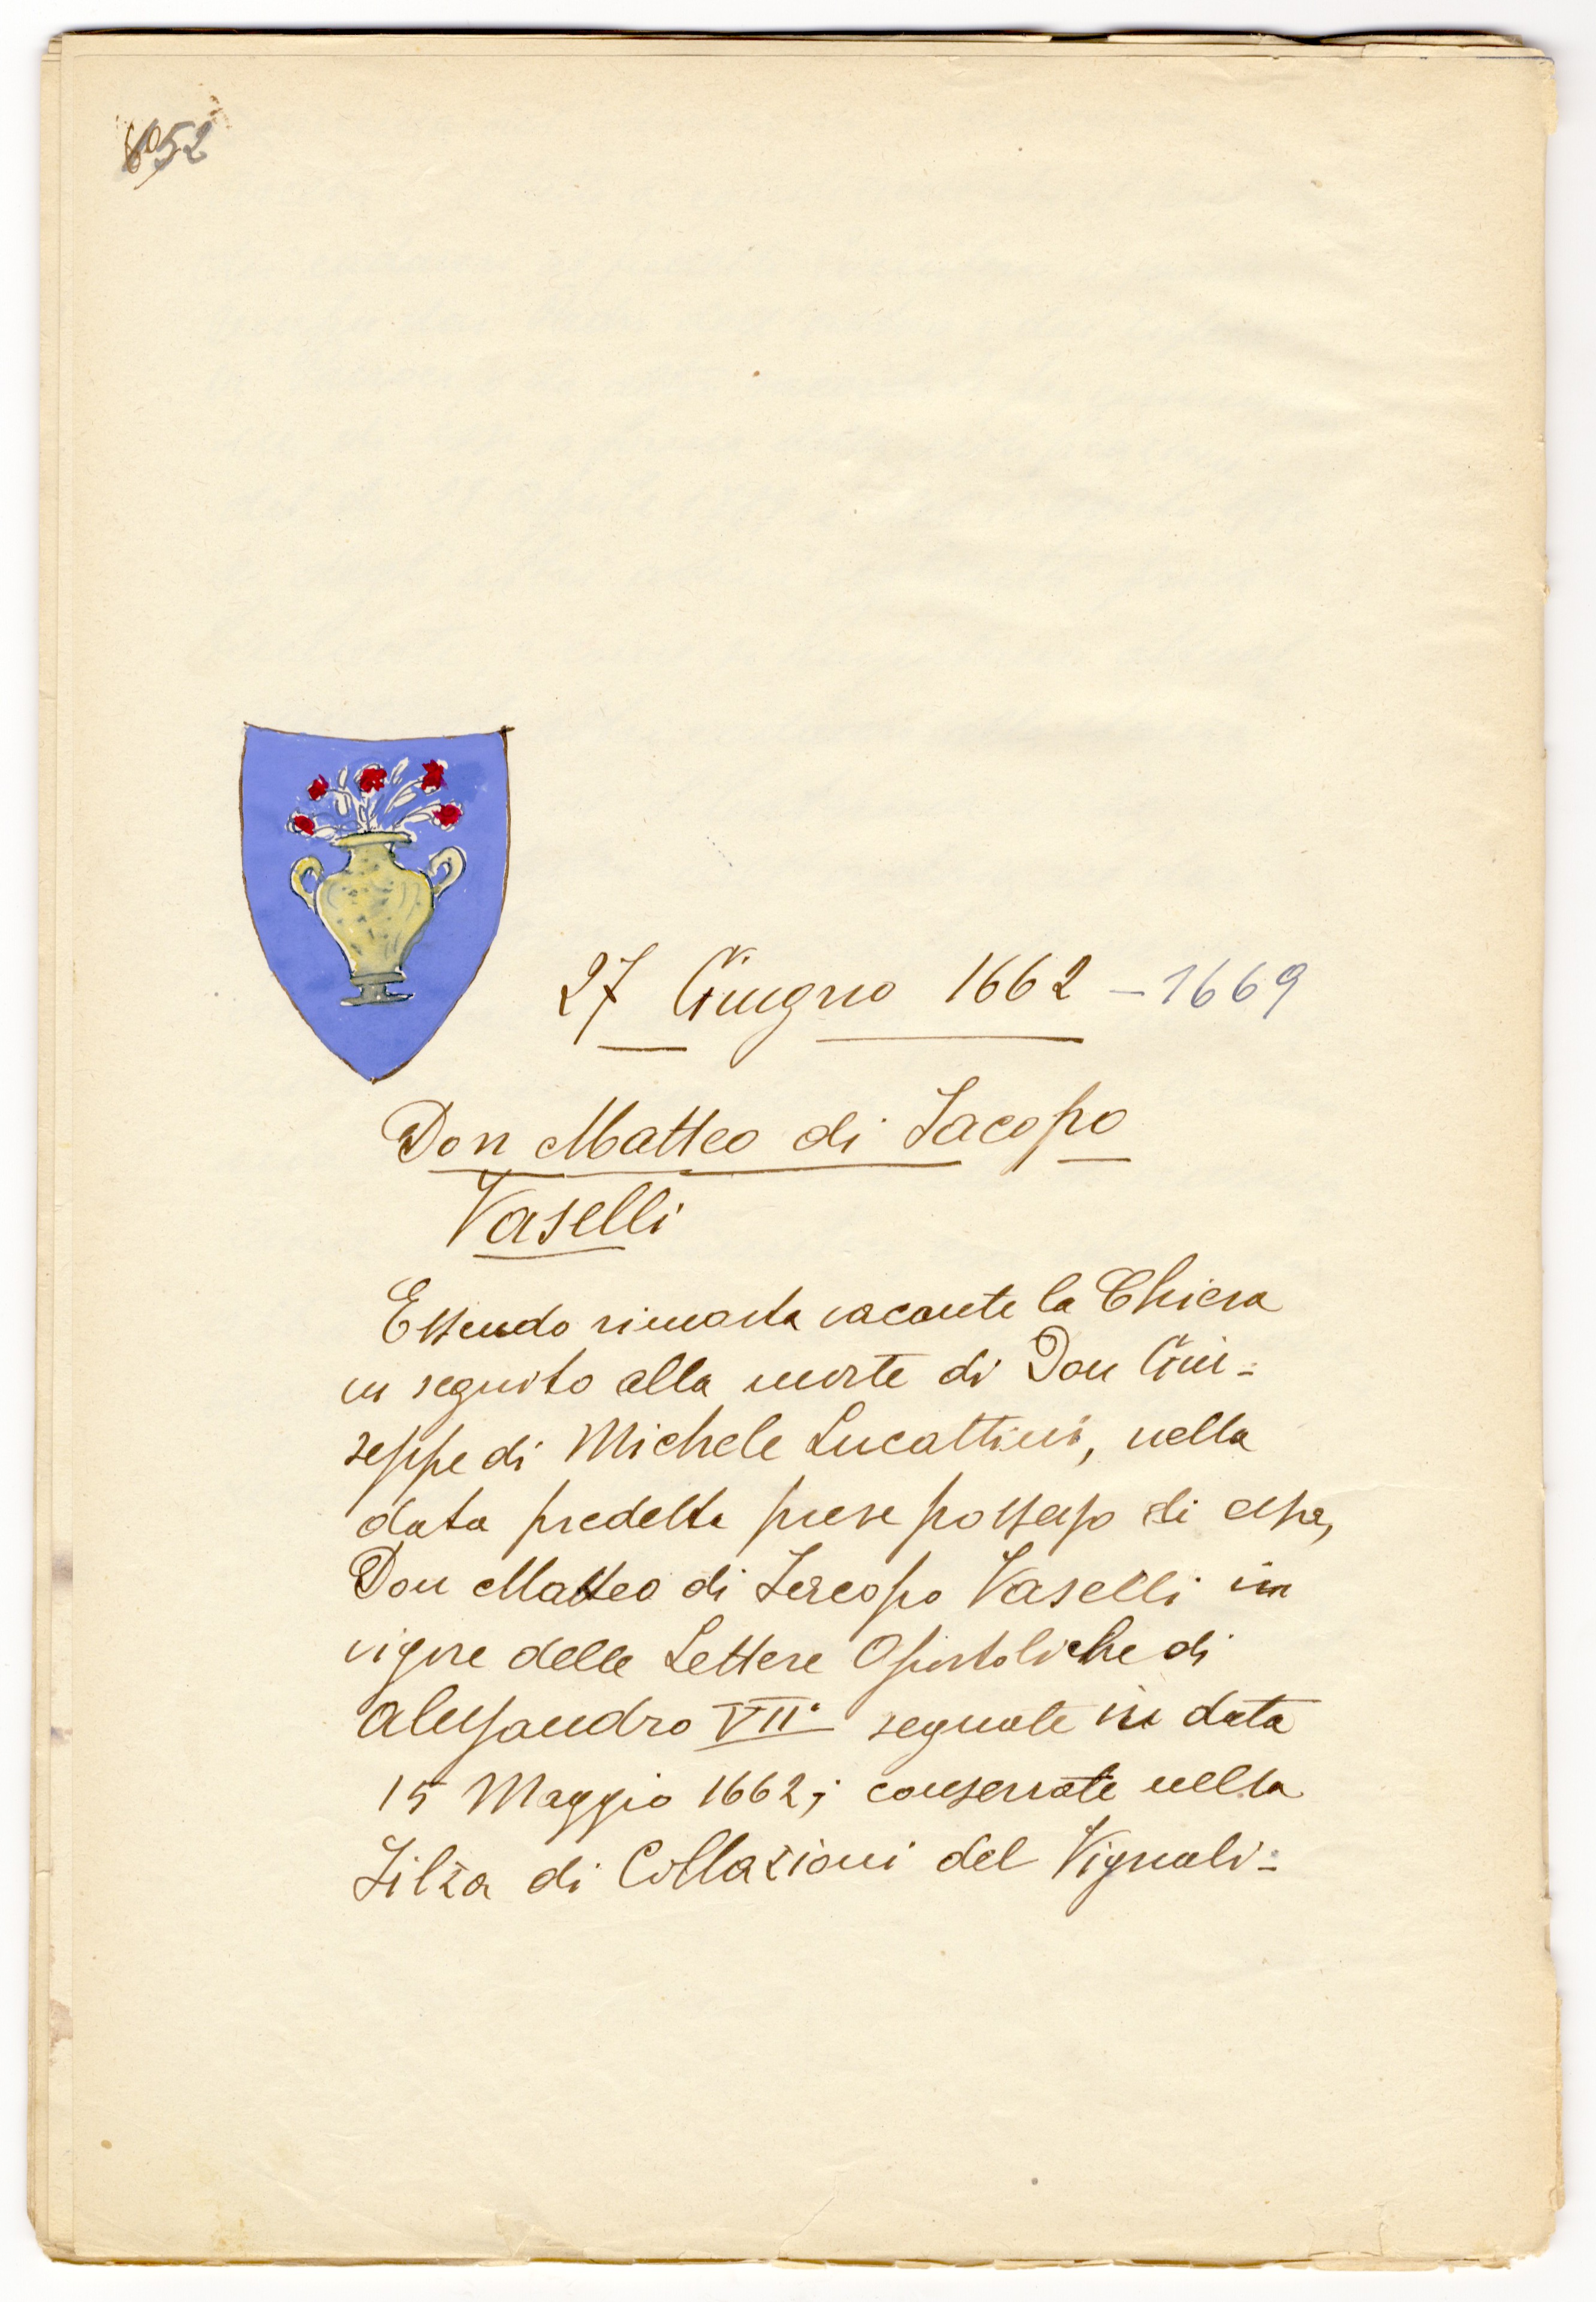 52
27 Giugno 1662 - 1669
Don Matteo di Iacopo
Vaselli
Essendo rimasta vacante la Chiesa
in seguito alla morte di Don Giu-
seppe di Michele Lucattini, nella
data predetta prese possesso di essa,
Don Matteo di Iacopo Vaselli in
vigore delle Lettere Apostoliche di
Alessandro VII° segnate in data
15 Maggio 1662; conservate nella
Filza di Collazioni del Vignali-